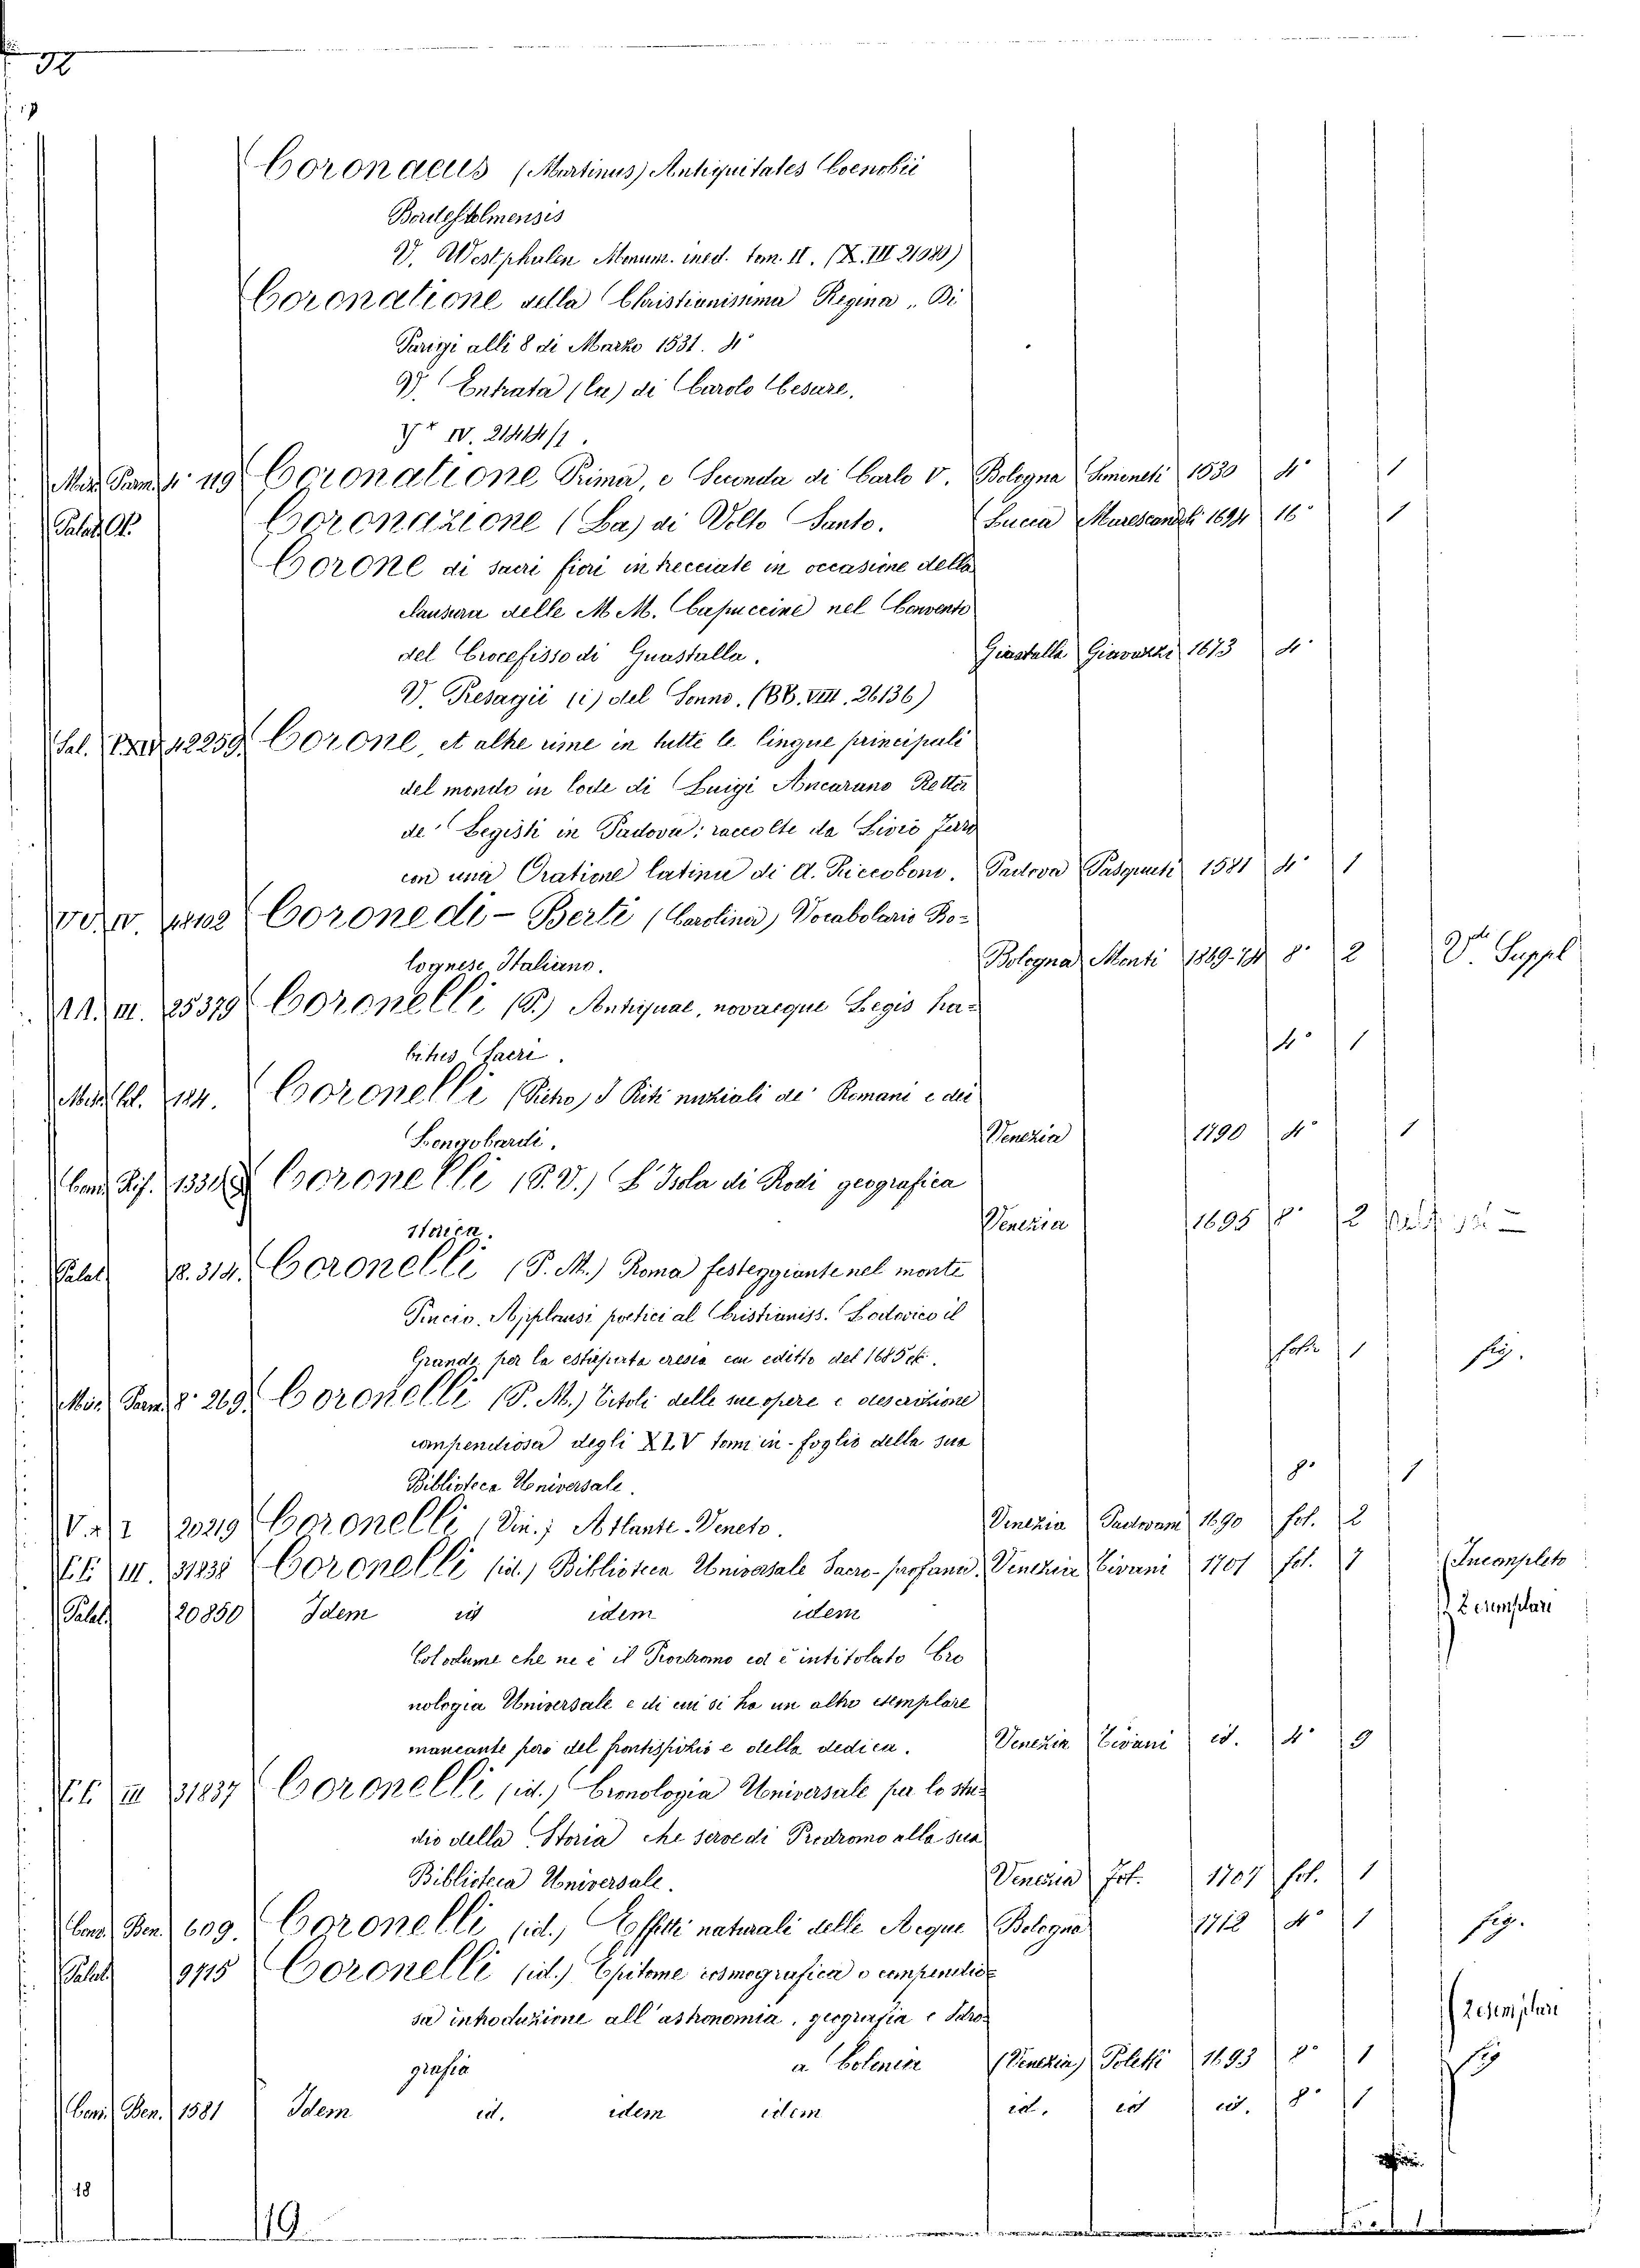 32
Coronaeus (Martinus) Antiquitates Coenobii
Bordesholmensis
V. Westphalen Monum. ined. tom. II. (X. III 21980)
Coronatione della Christianissima Regina. Di
Parigi alli 8 di Marzo 1531. 4°
V. Entrata (la) di Carolo Cesare.
Y+ IV. 21414/1.
Misc. Parm. 4° 119 Coronatione Prima, e Secunda di Carlo V. Bologna 1530 4° 1
Palat. Coronazione (La) di Volto Santo. Lucca Marescandoli 1694 16° 1
Corone di sacri fiori intrecciate in occasione della
clausura delle M M. Capuccine nel Convento
del Crocefisso di Guastalla. Guastalla Giavazzi 1673 4°
V. Presagii (i) del Sonno. (BB. VIII. 26136)
Sal. 42259 Corone, et altre rime in tutte le lingue principali
del mondo in lode di Luigi Ancarano Retter
de' Legisti in Padova; raccolte da Livio Ferro
con una Oratione latina di A. Riccobono. Padova Pasquati 1581 4° 1
Coronedi-Berti (Carolina) Vocabolario Bo-
lognese Italiano. Bologna Monti 1869-74 8° 2 Vedi Suppl
III. 25379 Coronelli (P.) Antiquae, novaeque Legis ha-
bitus Sacri. 4° 1
184. Coronelli (Picho) I Riti nuziali de' Romani e dei
Longobardi. Venezia 1790 4° 1
Coronelli (P. V.) L'Isola di Rodi geografica
storica. Venezia 1695 8° 2
Palat 8.314. Coronelli (P. M.) Roma festeggiante nel monte
Pincio. Applausi poetici al Cristianiss. Lodovico il
Grande per la estirpata eresia con editto del 1685 fol. 1 fig.
Misc. Parm. 8° 269. Coronelli (P. M.) Titoli delle sue opere e descrizione
compendiosa degli XLV tomi in-foglio della sua
Biblioteca Universale. 8° 1
20219 Coronelli (Vin.) Atlante Veneto. Venezia Padovani 1690 fol. 2
III. 31838 Coronelli (id.) Biblioteca Universale Sacro-profana. Venezia Tivani 1701 fol. 7 Incompleto
Palat. 20850 Idem id idem idem 2 esemplari
Col volume che ne è il Prodromo ed è intitolato Cro
nologia Universale e di cui si ha un altro esemplare
mancante però del frontispizio e della dedica. Venezia Tivani id. 4° 9
III 31837 Coronelli (id.) Cronologia Universale per lo stu-
dio della Storia che serve di Prodromo alla sua
Biblioteca Universale. Venezia 1707 fol. 1
Ben. 609. Coronelli (id.) Effetti naturali delle Acque Bologna 1712 4° 1 fig.
Palat 9715 Coronelli (id.) Epitome cosmografica o compendio-
sa introduzione all'astronomia, geografia e Idro- 2 esemplari
grafia a Colonia (Venezia) Poletti 1693 8° 1 fig
Ben. 1581 Idem id. idem idem id. id id. 8° 1
18
19